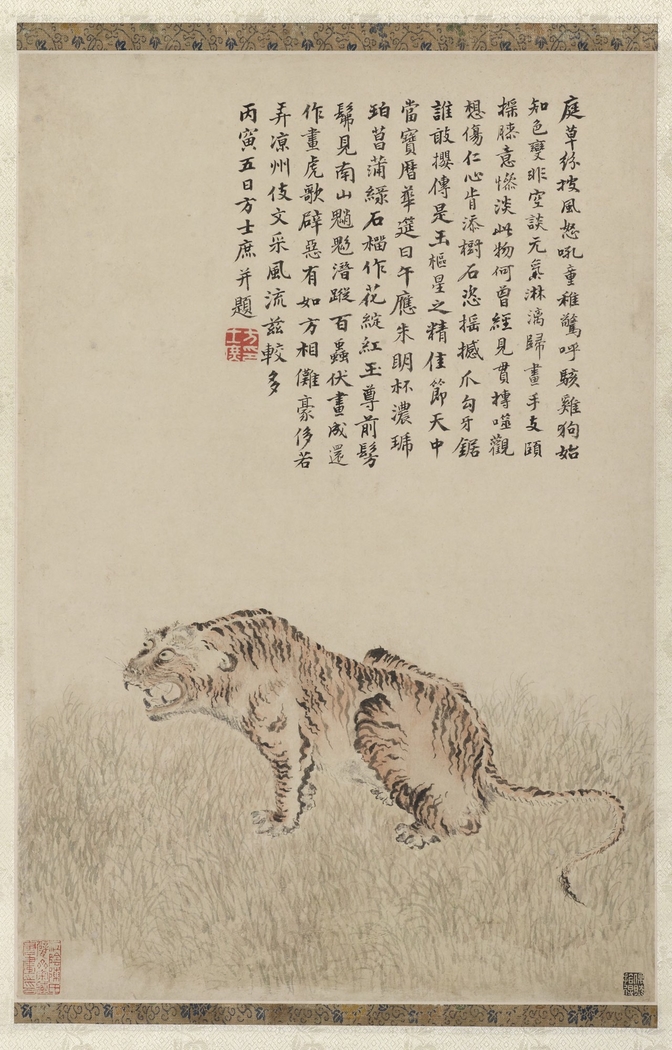 庭草紛披風怒吼童稚驚呼駭雞狗始
知色變非空談元氣淋漓歸畫手支頤
採膝意慘淡此物何曾經見貫摶噬觀
想傷仁心肯添樹石恣搖撼爪勾牙鋸
誰敢攖傳是玉樞星之精佳節天中
當寶曆華筵日午應朱明杯濃琥
珀菖蒲綠石榴作花綻紅玉尊前髣
髴見南山魈魅潛蹤百蟲伏畫成還
作畫虎歌辟惡有如方相儺豪侈若
弄涼州伎文采風流茲較多
丙寅五日方士庶并題